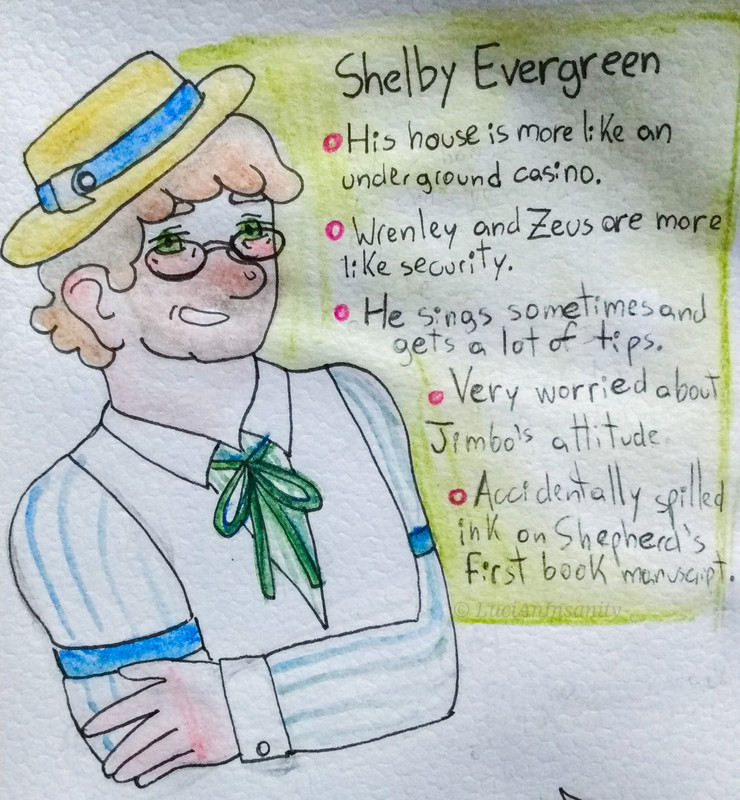 Shelby Evergreen
His house is more like an
underground casino.
Wrenley and Zeus are more
like security.
He sings sometimes and
gets a lot of tips.
Very worried about
Jimbo's attitude
Accidentally spilled
ink on Shepherd's
first book manuscript.
© LuciAnInsanity